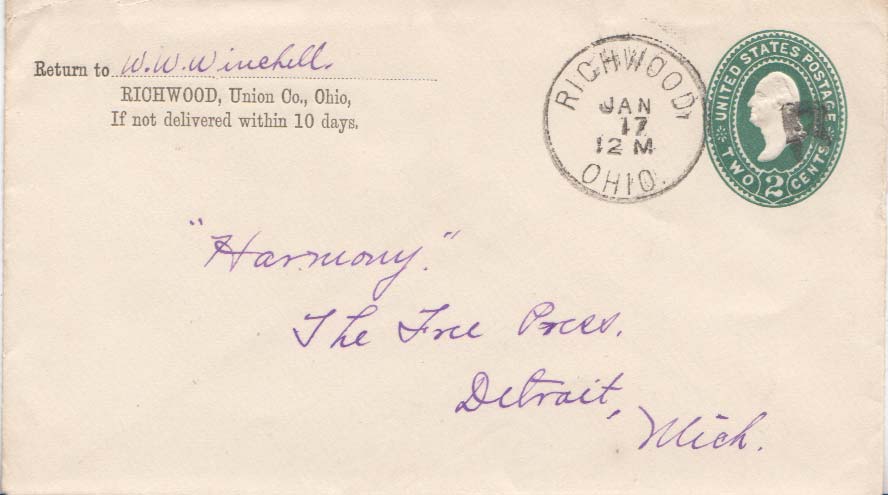 Return to W. W. Winchell.
RICHWOOD, Union Co., Ohio,
If not delivered within 10 days.
RICHWOOD,
JAN
17
12 M
OHIO.
UNITED STATES POSTAGE
TWO 2 CENTS
"Harmony."
The Free Press.
Detroit,
Mich.